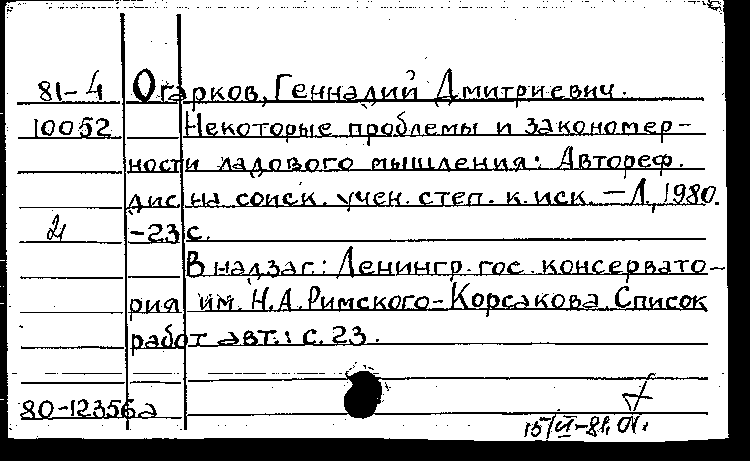 81-4 Огарков, Геннадий Дмитриевич.
10052 Некоторые проблемы и закономер-
ности ладового мышления: Автореф.
дис на соиск. учен. степ. к. иск. — Л., 1980.
2 -23 с.
В надзаг: Ленингр. гос. консервато-
рия им. Н.А. Римского-Корсакова. Список
работ авт.: с. 23.
80-12356а
15/VI-81.